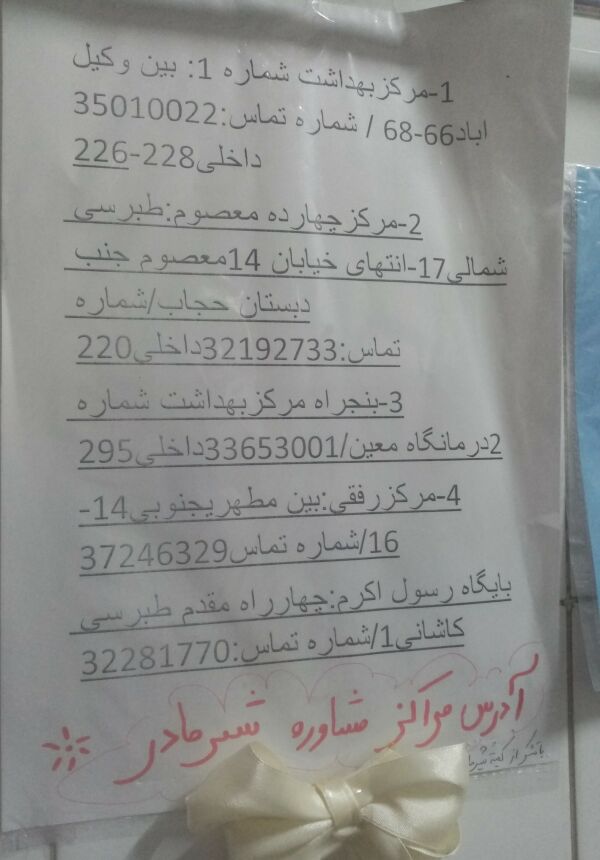 1-مرکزبهداشت شماره 1: بین وکیل
اباد66-68 / شماره تماس:35010022
داخلی228-226
2-مرکزچهارده معصوم:طبرسی
شمالی17-انتهای خیابان 14معصوم جنب
دبستان حجاب/شماره
تماس:32192733داخلی220
3-بنجراه مرکزبهداشت شماره
2درمانگاه معین/33653001داخلی295
4-مرکزرفقی:بین مطهریجنوبی14-
16/شماره تماس37246329
بایگاه رسول اکرم:چهارراه مقدم طبرسی
کاشانی1/شماره تماس:32281770
آدرس مراکز مشاوره شیرمادر
باتشکر از کمیته شیرما